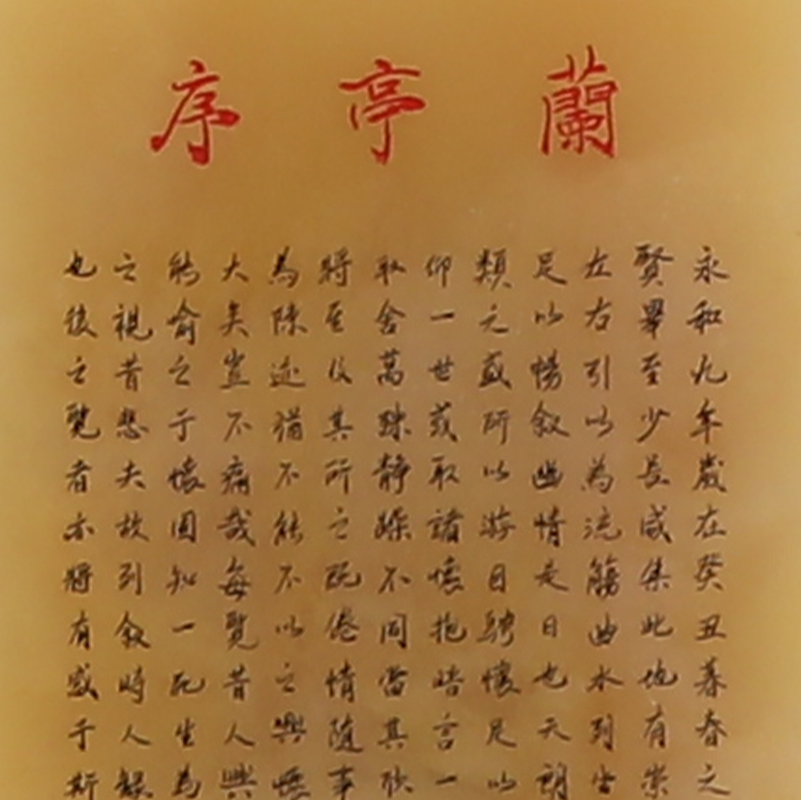 蘭亭序
永和九年歲在癸丑暮春之
賢畢至少長咸集此地有崇
左右引以為流觴曲水列坐
足以暢叙幽情是日也天朗
類之盛所以遊目騁懷足以
仰一世或取諸懷抱晤言一
取舍萬殊静躁不同當其欣
將至及其所之既倦情隨事
為陳迹猶不能不以之興懷
大矣豈不痛哉每覽昔人興
能喻之于懷固知一死生為
之視昔悲夫故列叙時人録
也後之覽者亦將有感于斯